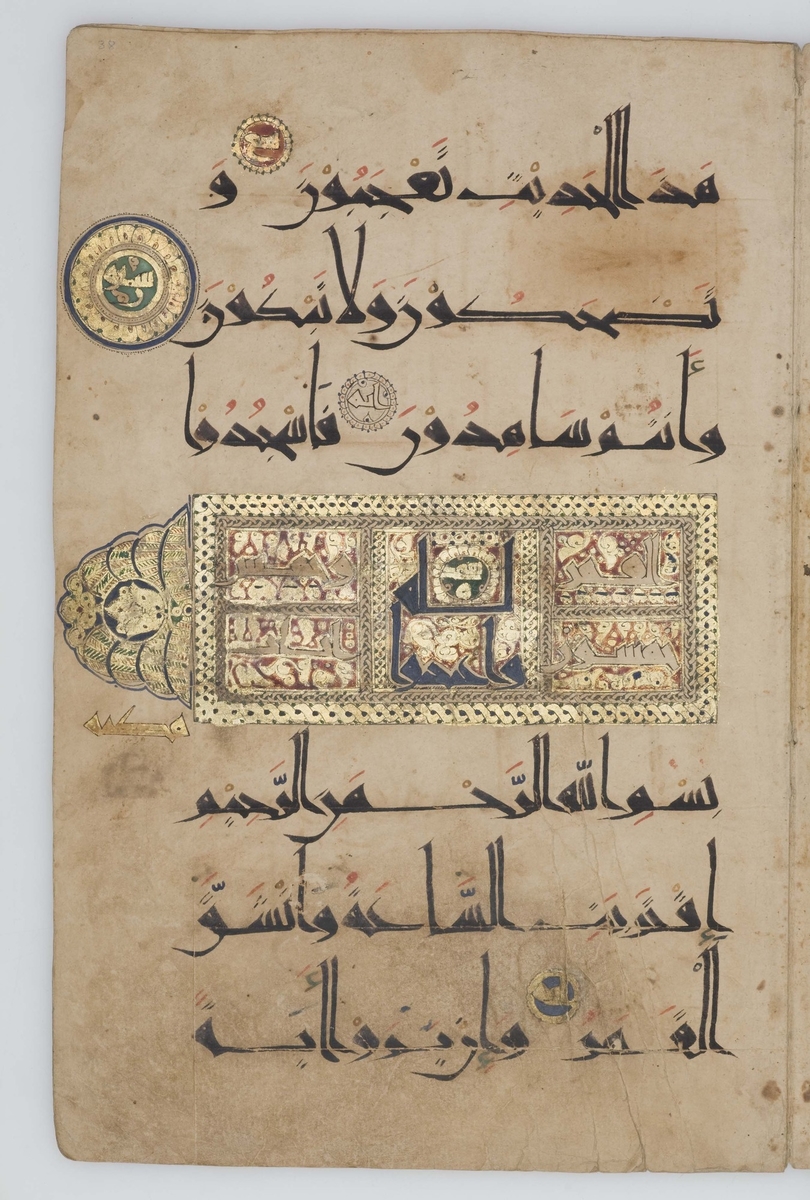 هَذَا الْحَدِيثِ تَعْجَبُونَ وَ
تَضْحَكُونَ وَلَا تَبْكُونَ
وَأَنتُمْ سَامِدُونَ فَاسْجُدُوا
لله
واعبدوا
بِسْمِ اللَّهِ الرَّحْمَنِ الرَّحِيمِ
اِقْتَرَبَتِ السَّاعَةُ وَانْشَقَّ
الْقَمَرُ وَإِنْ يَرَوْا آيَةً